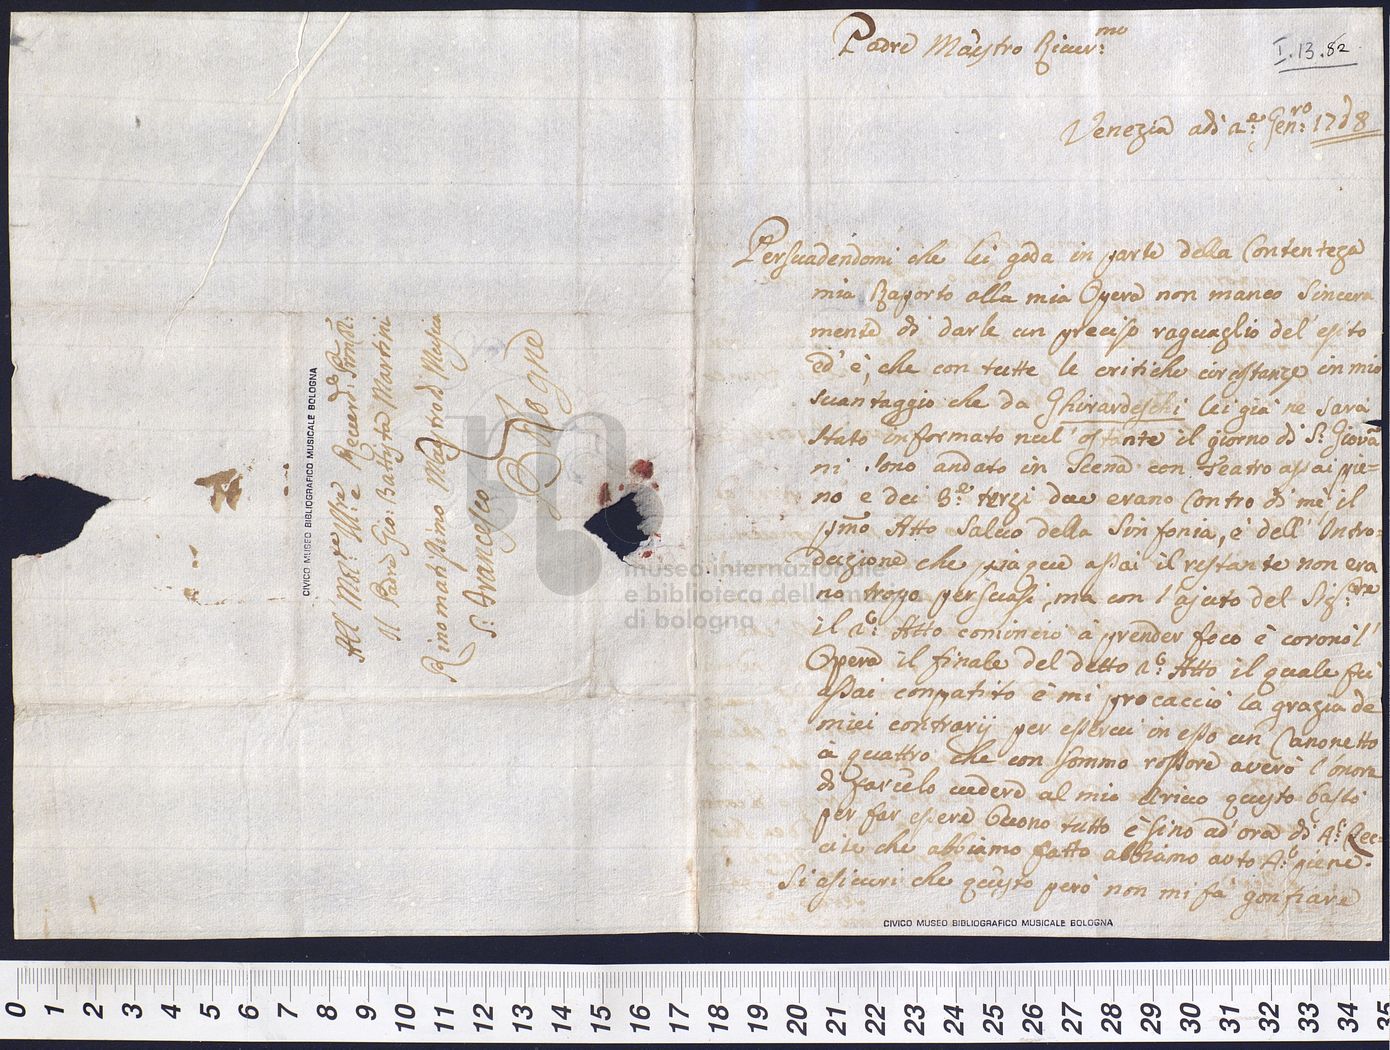 Padre Maestro River:mo
I.13.82
Venezia adì 2: Gen:ro 1758
Persuadendomi che lei goda in parte della Contenteza
mia Raporto alla mia Opera non manco sincera
mente di darle un preciso raguaglio del' esito
ed' è, che con tutte le critiche circostanze in mio
svantaggio che da Ghirardeschi lei già ne sarà
stato informato nul' ostante il giorno di S: Giova
ni sono andato in Scena con Teatro assai pie=
no e dei 3: terzi due erano Contro di mè il
p:mo Atto Salvo della Sinfonia, è dell' Intro=
duzione che piaque assai il restante non era
no tropo persuasi, ma con l'ajuto del Sig:re
il 2: Atto cominciò à prender foco è coronò l'
Opera il finale del detto 2: Atto il quale fù
assai conpatito è mi procacciò la grazia de
miei contrarij per esservi in esso un Canonetto
à quattro che con sommo rossore averò l'onore
di farcelo vedere al mio arivo questo bastò
per far essere buono tutto è sino ad' ora di 4: Rec=
cite che abbiamo fatto abbiamo auto 4: piene.
Si asicuri che questo però non mi fà gonfiare
All Mol: Ill:re e Reverd:
Il Padre Gio: Battista Martini
Rinomatissimo Maestro di Musica
S: Francesco Bologna
CIVICO MUSEO BIBLIOGRAFICO MUSICALE BOLOGNA
CIVICO MUSEO BIBLIOGRAFICO MUSICALE BOLOGNA
museo internazionale
e biblioteca della musica
di bologna
0 1 2 3 4 5 6 7 8 9 10 11 12 13 14 15 16 17 18 19 20 21 22 23 24 25 26 27 28 29 30 31 32 33 34 35